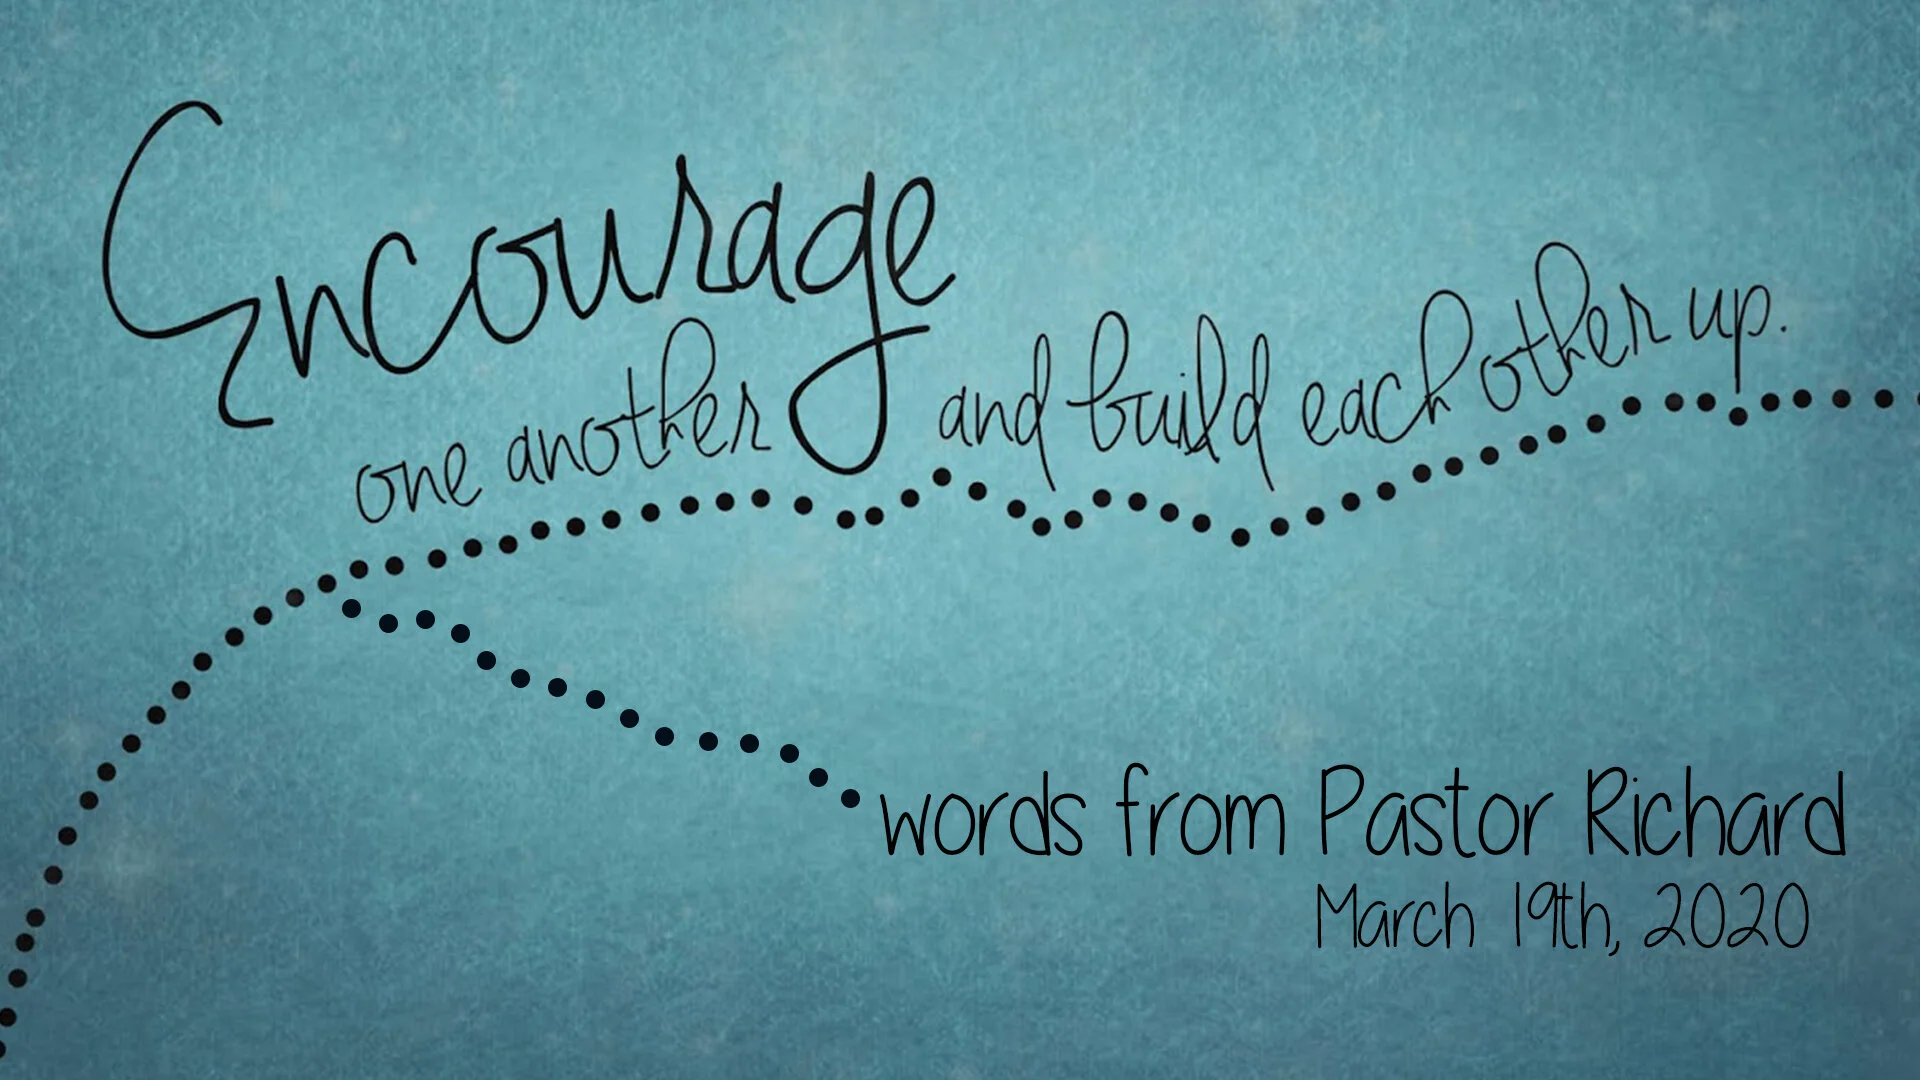 Encourage
one another and build each other up.
words from Pastor Richard
March 19th, 2020